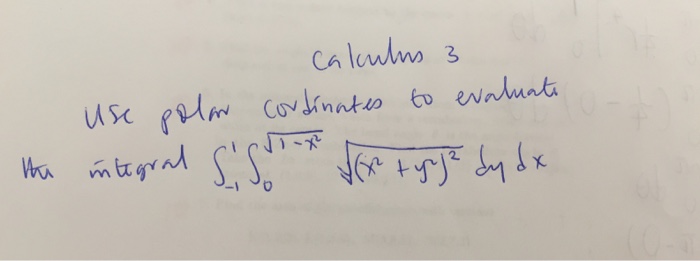 Calculus 3
Use polar cordinates to evaluate
the integral ∫₋₁¹ ∫₀^√(1-x²) √(x² + y²)² dy dx